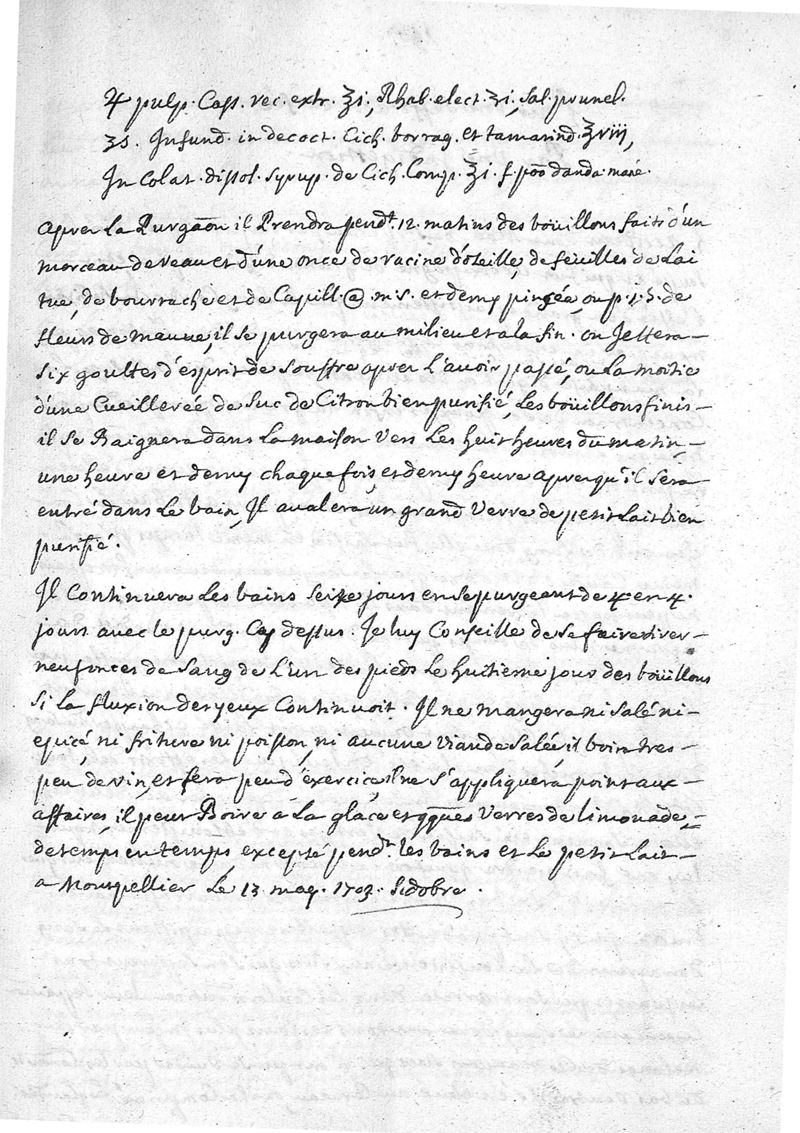 ♃ pulp. Cass. rec. extr. ℥i, Rhab. elect. ʒi, sal. prunel.
ʒs. Infund. in decoct. Cich. borrag. et tamarind. ℥viii,
In Colat. dissol. syrup. de Cich. Comp. ℥i. f. po͠o danda mane.
apres La Purga͠on il Prendra pend.t 12. matins des boüillons faits d'un
morceau de veau et d'une once de racine d'ozeille, de feüilles de Lai
tue, de bourrache et de Capill. @ m.s. et demy pincée, ou p. 1. s. de
fleurs de mauue, il se purgera au milieu et a la fin. on Jettera
six gouttes d'esprit de souffre apres L'auoir passé, ou La moitié
d'une Cueillereé de suc de Citron bien purifié, Les boüillons finis
il se Baignera dans La maison vers Les huit heures du matin,
une heure et demy chaque fois, et demy heure apres qu'il sera
entré dans Le bain, Il aualera un grand verre de petit Lait bien
purifié.
Il Continuera Les bains seize jours en se purgeant de 4. en 4.
jours avec le purg. Cy dessus. Je luy Conseille de se faire tirer
neuf onces de sang de L'un des pieds Le huitieme jour des boüillons
si La fluxion des yeux Continuoit. Il ne mangera ni salé ni
epicé, ni friture ni poisson, ni aucune viande salée, il boira tres
peu de vin, et fera peu d'exercice, Il ne s'appliquera point aux
affaires, il peut Boire à La glace et q͠ques verres de limonade,
de temps en temps excepté pend.t les bains et Le petit Lait
a Montpellier Le 13 may. 1703. Sidobre.